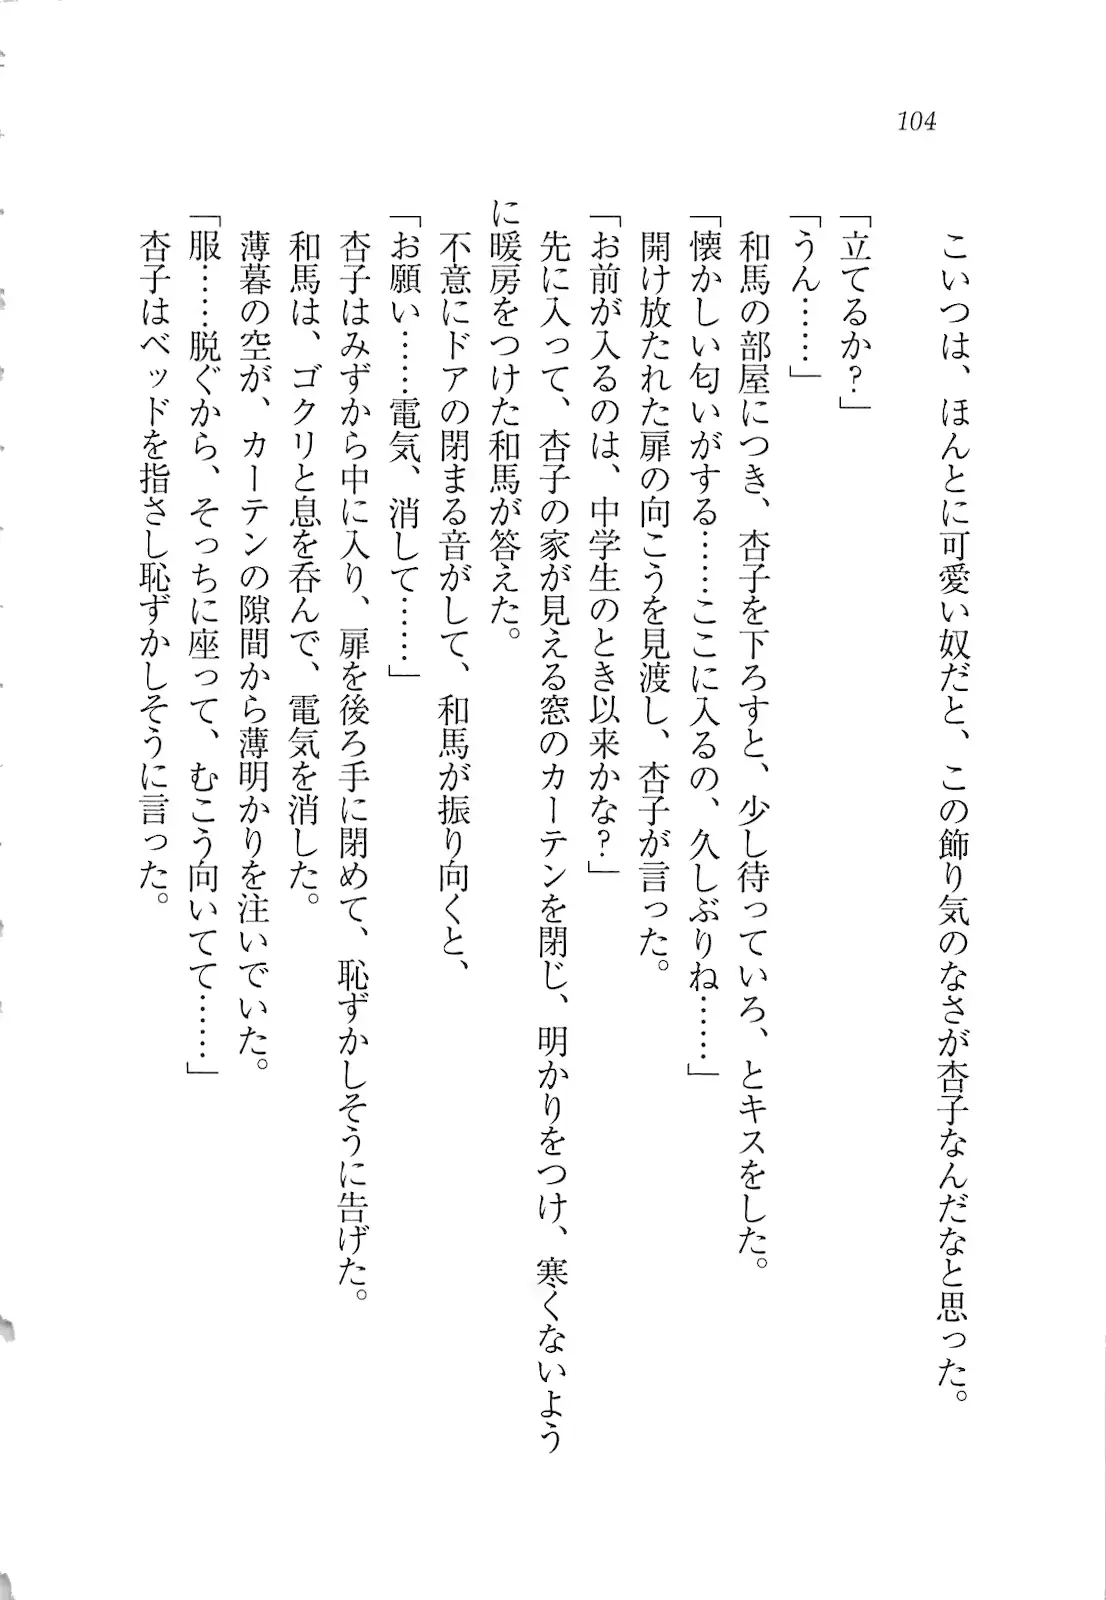 104
こいつは、ほんとに可愛い奴だと、この飾り気のなさが杏子なんだなと思った。
「立てるか?」
「うん……」
和馬の部屋につき、杏子を下ろすと、少し待っていろ、とキスをした。
「懐かしい匂いがする……ここに入るの、久しぶりね……」
開け放たれた扉の向こうを見渡し、杏子が言った。
「お前が入るのは、中学生のとき以来かな?」
先に入って、杏子の家が見える窓のカーテンを閉じ、明かりをつけ、寒くないよう
に暖房をつけた和馬が答えた。
不意にドアの閉まる音がして、和馬が振り向くと、
「お願い……電気、消して……」
杏子はみずから中に入り、扉を後ろ手に閉めて、恥ずかしそうに告げた。
和馬は、ゴクリと息を呑んで、電気を消した。
薄暮の空が、カーテンの隙間から薄明かりを注いでいた。
「服……脱ぐから、そっちに座って、むこう向いてて……」
杏子はベッドを指さし恥ずかしそうに言った。